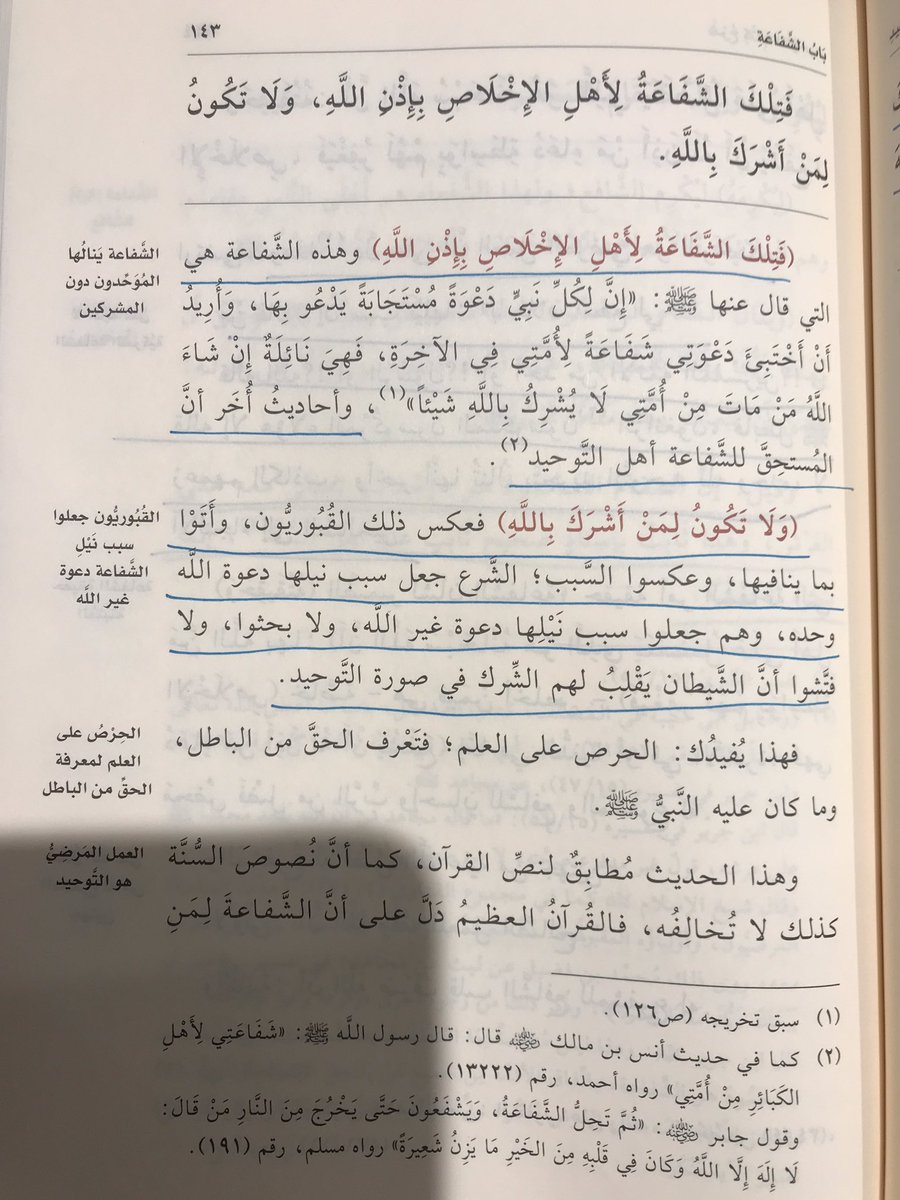 بَابُ الشَّفَاعَةِ
١٤٣
فَتِلْكَ الشَّفَاعَةُ لِأَهْلِ الإِخْلَاصِ بِإِذْنِ اللَّهِ، وَلَا تَكُونُ
لِمَنْ أَشْرَكَ بِاللَّهِ.
(فَتِلْكَ الشَّفَاعَةُ لِأَهْلِ الإِخْلَاصِ بِإِذْنِ اللَّهِ) وهذه الشَّفاعة هي
التي قال عنها ﷺ: «إِنَّ لِكُلِّ نَبِيٍّ دَعْوَةً مُسْتَجَابَةً يَدْعُو بِهَا، وَأُرِيدُ
أَنْ أَخْتَبِئَ دَعْوَتِي شَفَاعَةً لِأُمَّتِي فِي الآخِرَةِ، فَهِيَ نَائِلَةٌ إِنْ شَاءَ
اللَّهُ مَنْ مَاتَ مِنْ أُمَّتِي لَا يُشْرِكُ بِاللَّهِ شَيْئاً»(١)، وأحاديثُ أُخَر أنَّ
المُستحِقَّ للشَّفاعة أهل التَّوحيد(٢).
الشَّفاعة يَنالُها
المُوَحِّدون دون
المشركين
(وَلَا تَكُونُ لِمَنْ أَشْرَكَ بِاللَّهِ) فعكس ذلك القُبُوريُّون، وأَتَوْا
بما ينافيها، وعكسوا السَّبب؛ الشَّرع جعل سبب نيلها دعوة اللَّه
وحده، وهم جعلوا سبب نَيْلِها دعوة غير اللَّه، ولا بحثوا، ولا
فتَّشوا أنَّ الشَّيطان يَقْلِبُ لهم الشِّرك في صورة التَّوحيد.
القُبُوريُّون جعلوا
سبب نَيْلِ
الشَّفاعة دعوة
غير اللَّه
فهذا يُفيدُك: الحرص على العلم؛ فتَعْرف الحقَّ من الباطل،
وما كان عليه النَّبيُّ ﷺ.
الحِرْصُ على
العلم لمعرفة
الحقِّ من الباطل
وهذا الحديث مُطابِقٌ لنصِّ القرآن، كما أنَّ نُصوصَ السُّنَّة
كذلك لا تُخالِفُه، فالقُرآنُ العظيمُ دَلَّ على أنَّ الشَّفاعةَ لِمَن
العمل المَرضِيُّ
هو التَّوحيد
(١) سبق تخريجه (ص١٢٦).
(٢) كما في حديث أنس بن مالك رضي الله عنه قال: قال رسول اللَّه ﷺ: «شَفَاعَتِي لِأَهْلِ
الكَبَائِرِ مِنْ أُمَّتِي» رواه أحمد، رقم (١٣٢٢٢).
وقول جابر رضي الله عنه: «ثُمَّ تَحِلُّ الشَّفَاعَةُ، وَيَشْفَعُونَ حَتَّى يَخْرُجَ مِنَ النَّارِ مَنْ قَالَ:
لَا إِلَهَ إِلَّا اللَّهُ وَكَانَ فِي قَلْبِهِ مِنَ الخَيْرِ مَا يَزِنُ شَعِيرَةً» رواه مسلم، رقم (١٩١).